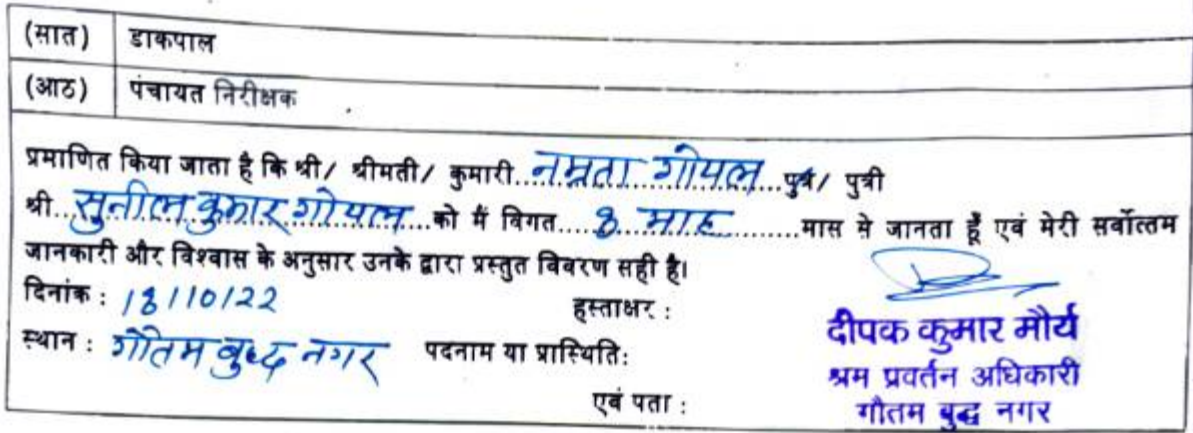 (सात) डाकपाल
(आठ) पंचायत निरीक्षक
प्रमाणित किया जाता है कि श्री/ श्रीमती/ कुमारी...नम्रता गोयल...पुत्र/ पुत्री
श्री...सुनील कुमार गोयल...को मैं विगत....8 माह.............मास से जानता हूँ एवं मेरी सर्वोत्तम
जानकारी और विश्वास के अनुसार उनके द्वारा प्रस्तुत विवरण सही है।
दिनांक : 18/10/22 हस्ताक्षर :
स्थान : गौतम बुद्ध नगर पदनाम या प्रास्थिति:
दीपक कुमार मौर्य
श्रम प्रवर्तन अधिकारी
एवं पता : गौतम बुद्ध नगर